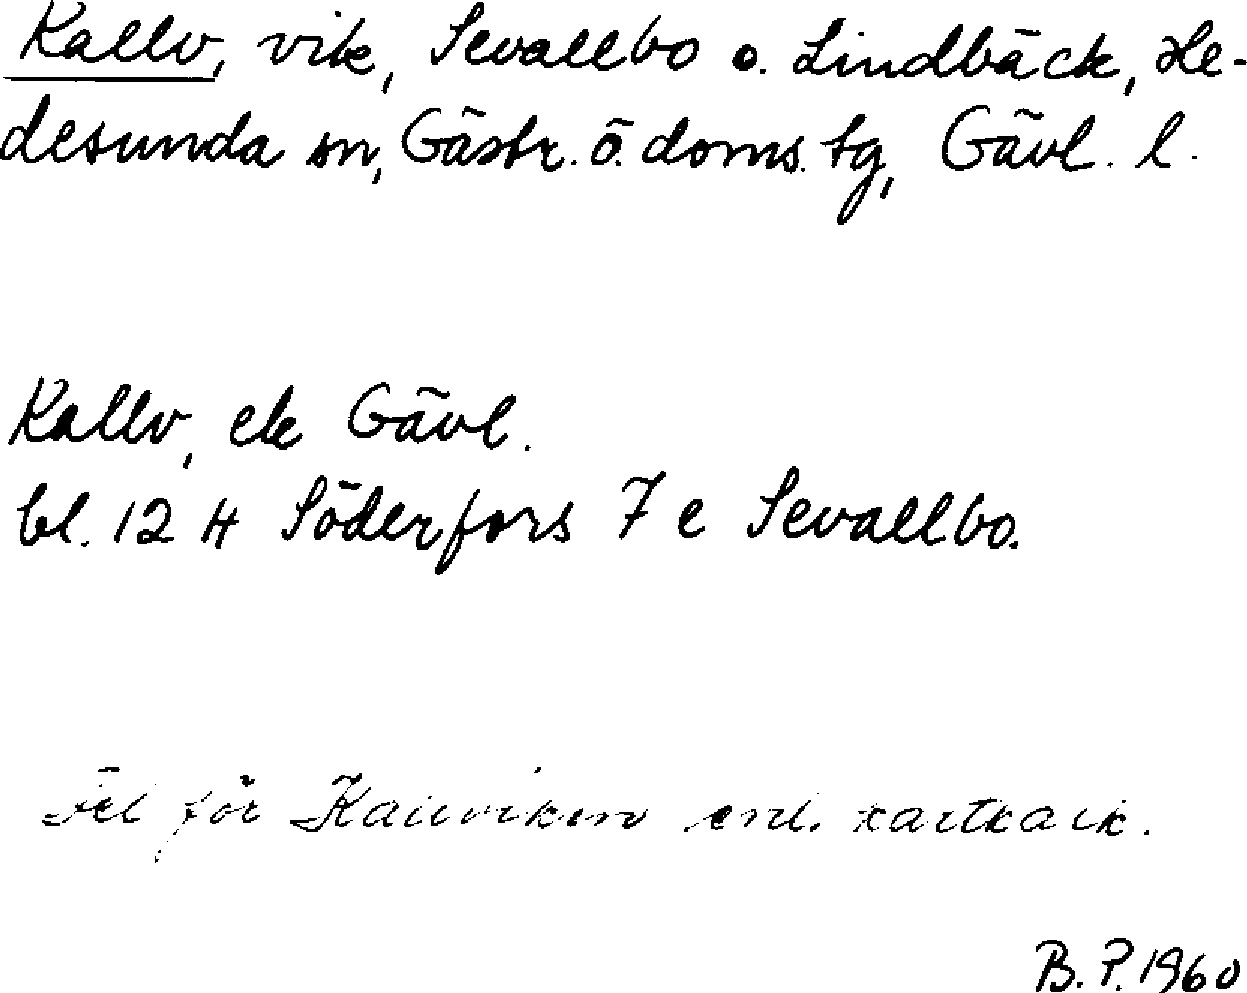 Kallv, vik, Sevallbo o. Lindbäck, He-
desunda sn, Gästr. ö. doms. tg, Gävl. l.
Kallv, ek Gävl.
bl. 12 H Söderfors 7 e Sevallbo.
Fel för Kallviken enl. kartkark.
B. P. 1960